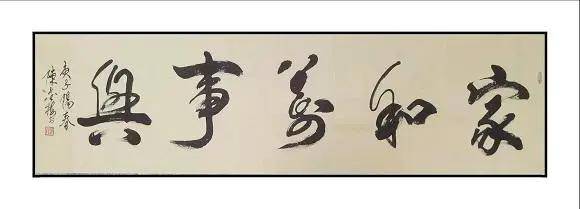 家和萬事興
庚子陽春
陳